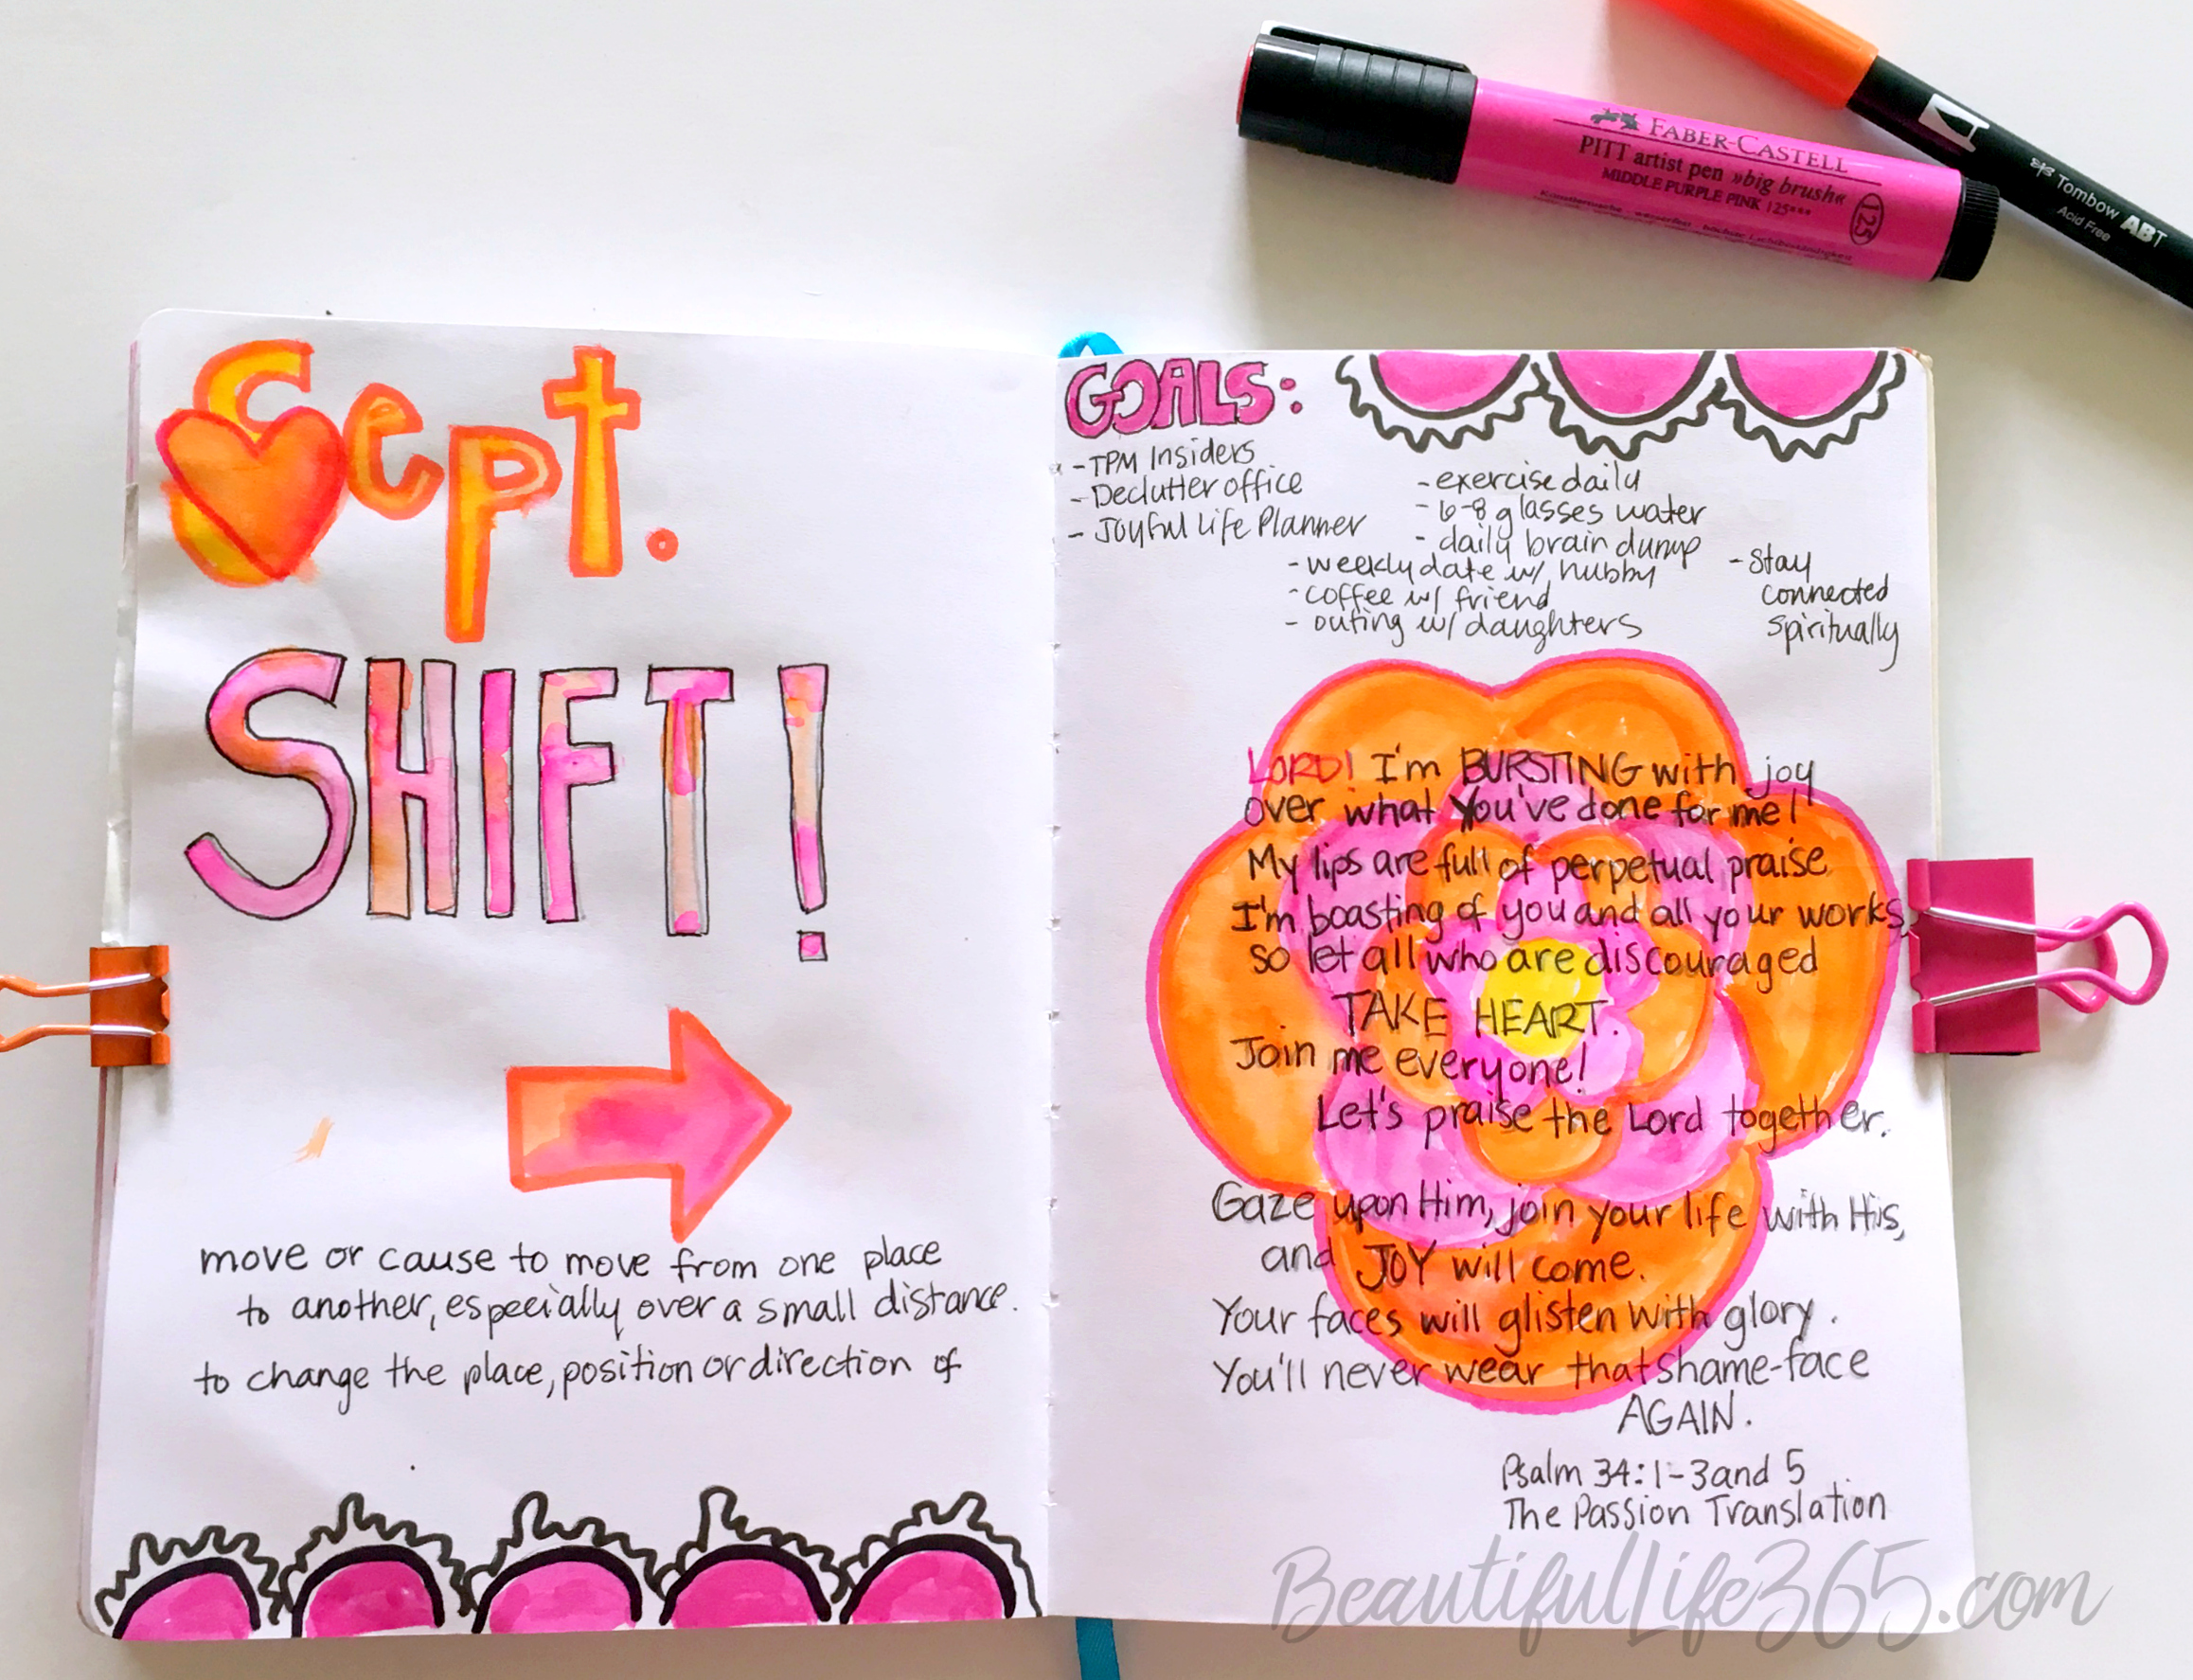 FABER-CASTELL
PITT artist pen »big brush«
MIDDLE PURPLE PINK 125***
125
Tombow ABT
Acid Free
Sept.
SHIFT!
move or cause to move from one place
to another, especially over a small distance.
to change the place, position or direction of
GOALS:
- TPM Insiders
- Declutter office
- Joyful Life Planner
- exercise daily
- 6-8 glasses water
- daily brain dump
- weekly date w/ hubby
- coffee w/ friend
- outing w/ daughters
- Stay
connected
spiritually
LORD! I'm BURSTING with joy
over what You've done for me!
My lips are full of perpetual praise
I'm boasting of you and all your works,
so let all who are discouraged
TAKE HEART.
Join me everyone!
Let's praise the Lord together.
Gaze upon Him, join your life with His,
and JOY will come.
Your faces will glisten with glory.
You'll never wear that shame-face
AGAIN.
Psalm 34:1-3 and 5
The Passion Translation
BeautifulLife365.com